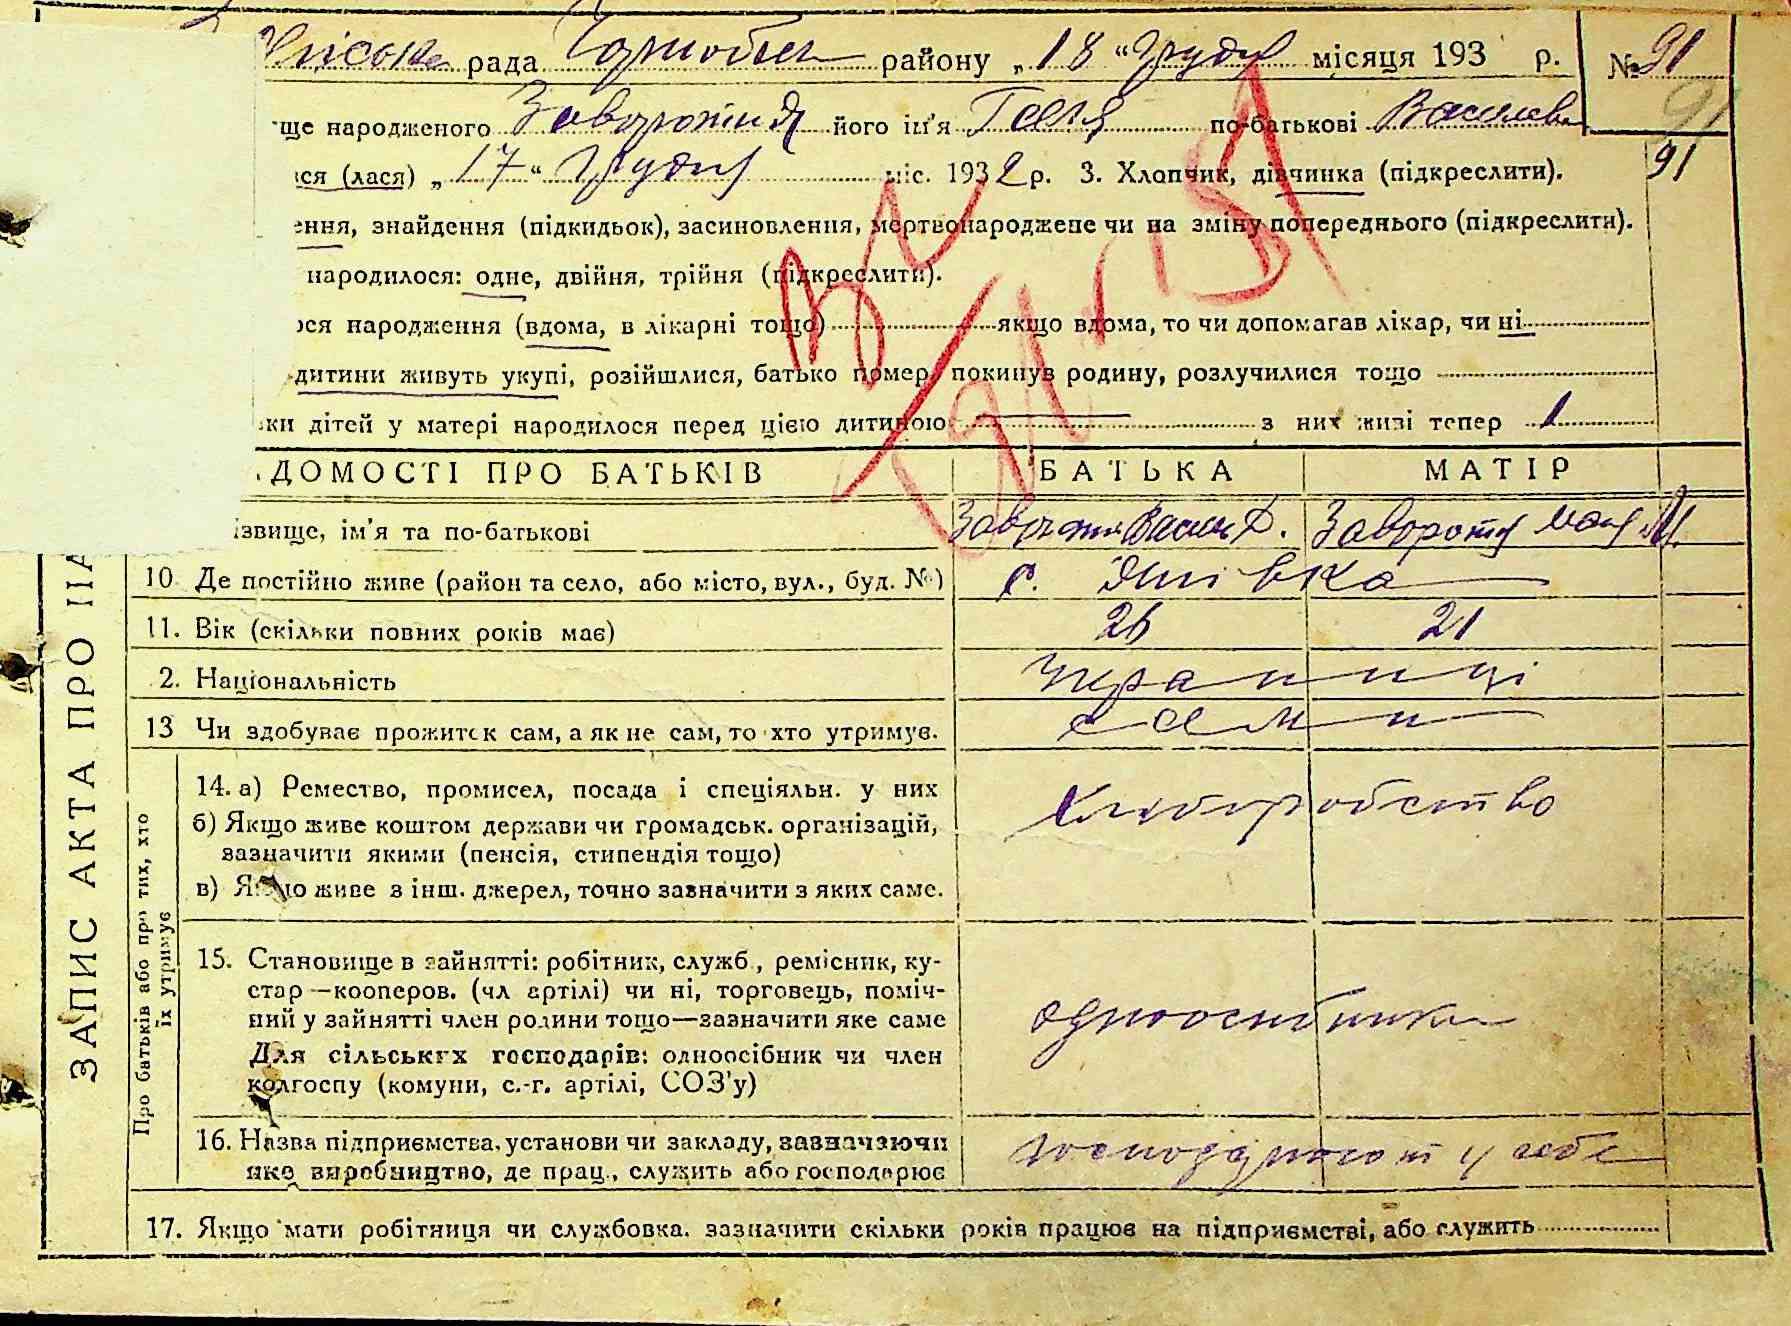 рада Чорнобил району „18" Грудня місяця 193 р. № 91
91
ще народженого його ім'я Геня по-батькові Василевн
ся (лася) „17" Грудня міс. 1932 р. 3. Хлопчик, дівчинка (підкреслити). 91
ення, знайдення (підкидьок), засиновлення, мертвонароджене чи на зміну попереднього (підкреслити).
народилося: одне, двійня, трійня (підкреслити).
ося народження (вдома, в лікарні тощо) якщо вдома, то чи допомагав лікар, чи ні
дитини живуть укупі, розійшлися, батько помер, покинув родину, розлучилися тощо
ки дітей у матері народилося перед цією дитиною — з них живі тепер 1
ДОМОСТІ ПРО БАТЬКІВ БАТЬКА МАТІР
ізвище, ім'я та по-батькові
10. Де постійно живе (район та село, або місто, вул., буд. №) с.
11. Вік (скільки повних років має) 26 21
2. Національність Украинці
13 Чи здобуває прожиток сам, а як не сам, то хто утримує. сами
14. а) Ремество, промисел, посада і спеціяльн. у них Хліборобство
б) Якщо живе коштом держави чи громадськ. організацій,
зазначити якими (пенсія, стипендія тощо)
в) Якщо живе з інш. джерел, точно зазначити з яких саме.
15. Становище в зайнятті: робітник, служб., ремісник, ку-
стар—кооперов. (чл артілі) чи ні, торговець, поміч-
ний у зайнятті член родини тощо—зазначити яке саме одноосібники
Для сільських господарів: одноосібник чи член
колгоспу (комуни, с.-г. артілі, СОЗ'у)
16. Назва підприємства, установи чи закладу, зазначаючи господарюют у себе
яке виробництво, де прац., служить або господарює
17. Якщо мати робітниця чи службовка, зазначити скільки років працює на підприємстві, або служить
ЗАПИС АКТА ПРО НА
Про батьків або про тих, хто
їх утримує